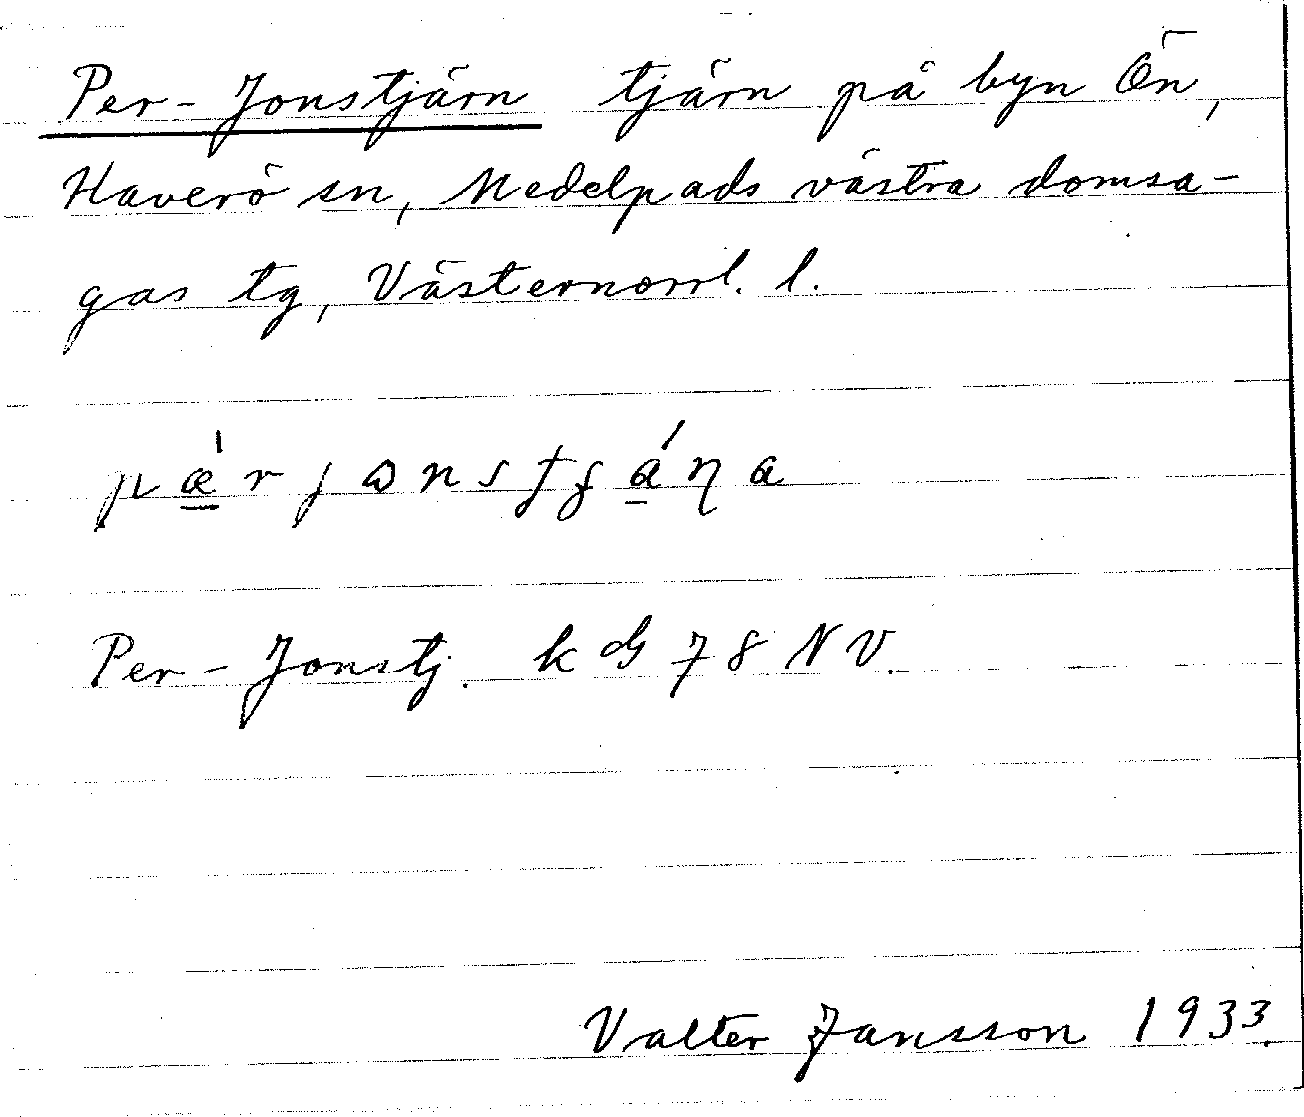 Per-Jonstjärn tjärn på byn Ön,
Haverö sn, Medelpads västra domsa-
gas tg, Västernorrl. l.
Per-Jonstj. k dG 78 NV.
Valter Jansson 1933.